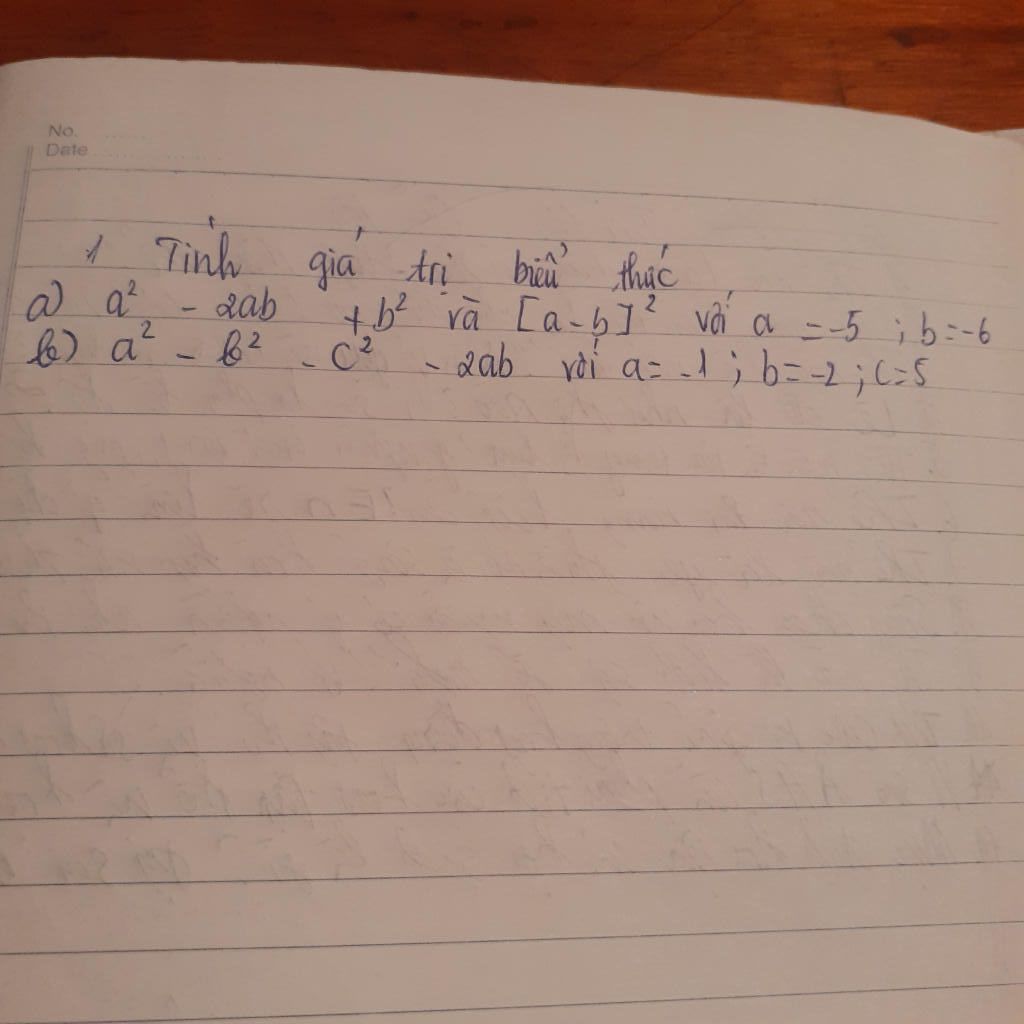 No. ......
Date ..................
1 Tính giá trị biểu thức
a) a² - 2ab + b² và [a-b]² với a = -5 ; b = -6
b) a² - b² - c² - 2ab với a = -1 ; b = -2 ; c = 5